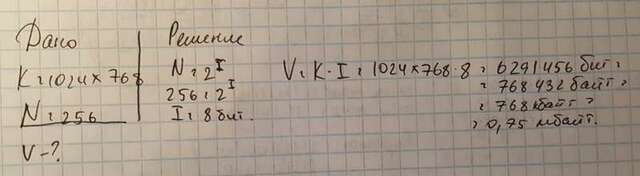 Дано
K = 1024 × 768
N = 256
V - ?
Решение
N = 2^I
256 = 2^I
I = 8 бит.
V = K · I = 1024 × 768 · 8 = 6291456 бит =
= 768 432 байт =
= 768 кбайт =
= 0,75 мбайт.